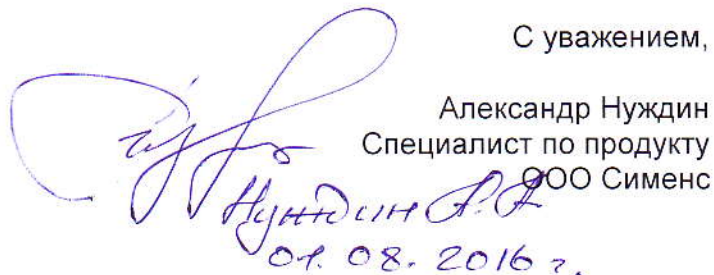 С уважением,
Александр Нуждин
Специалист по продукту
ООО Сименс
Нуждин А.А
01. 08. 2016 г.